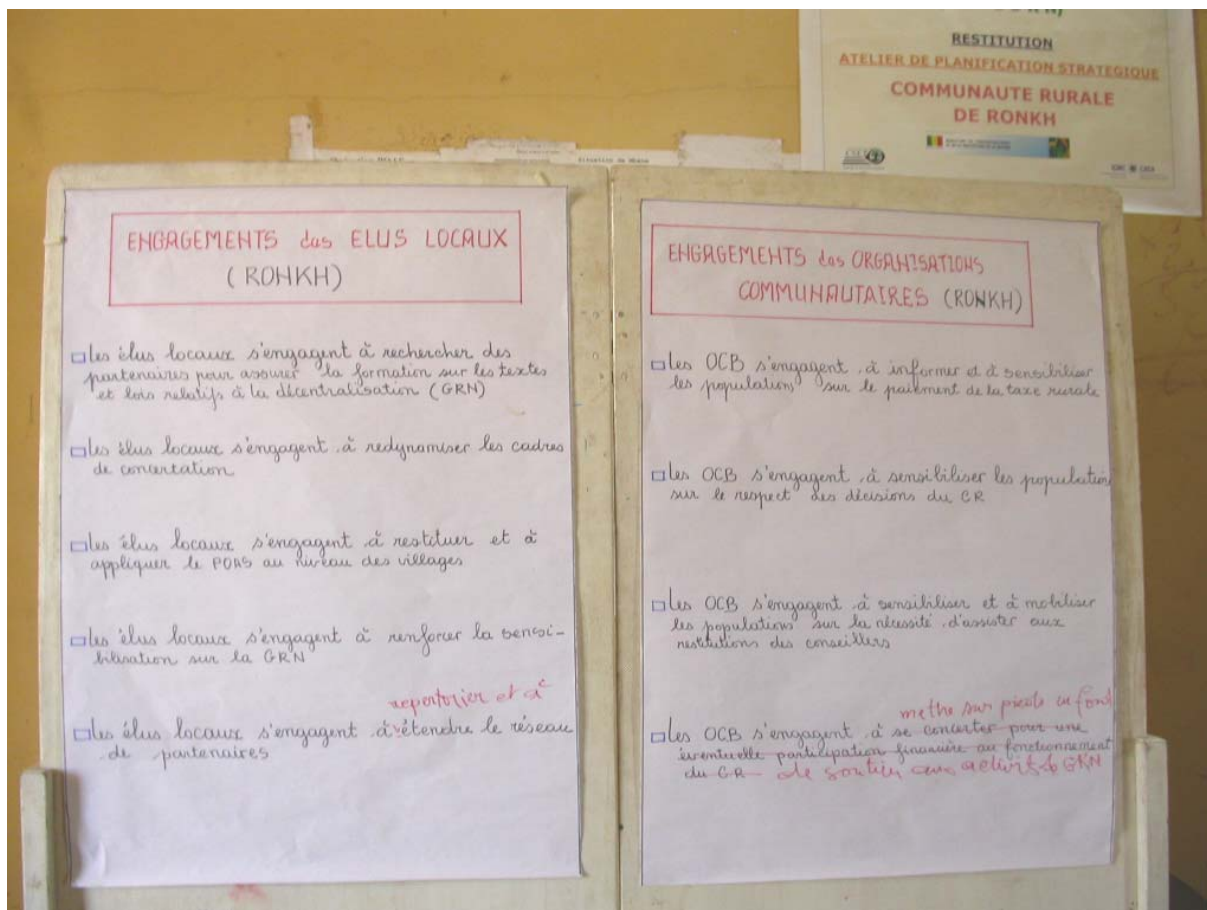 RESTITUTION
ATELIER DE PLANIFICATION STRATEGIQUE
COMMUNAUTE RURALE
DE RONKH
ENGAGEMENTS des ELUS LOCAUX
(RONKH)
Les élus locaux s'engagent à rechercher des
partenaires pour assurer la formation sur les textes
et lois relatifs à la décentralisation (GRN)
Les élus locaux s'engagent à redynamiser les cadres
de concertation
Les élus locaux s'engagent à restituer et à
appliquer le POAS au niveau des villages
Les élus locaux s'engagent à renforcer la sensi-
bilisation sur la GRN
repertorier et à
Les élus locaux s'engagent à étendre le réseau
de partenaires
ENGAGEMENTS des ORGANISATIONS
COMMUNAUTAIRES (RONKH)
Les OCB s'engagent à informer et à sensibiliser
les population sur le paiement de la taxe rurale
Les OCB s'engagent à sensibiliser les population
sur le respect des décisions du CR
Les OCB s'engagent à sensibiliser et à mobiliser
les populations sur la nécessité d'assister aux
restitutions des conseillers
sur un fond
Les OCB s'engagent à se concerter pour une
éventuelle participation financière au fonctionnement
du CR de soutien aux GRN